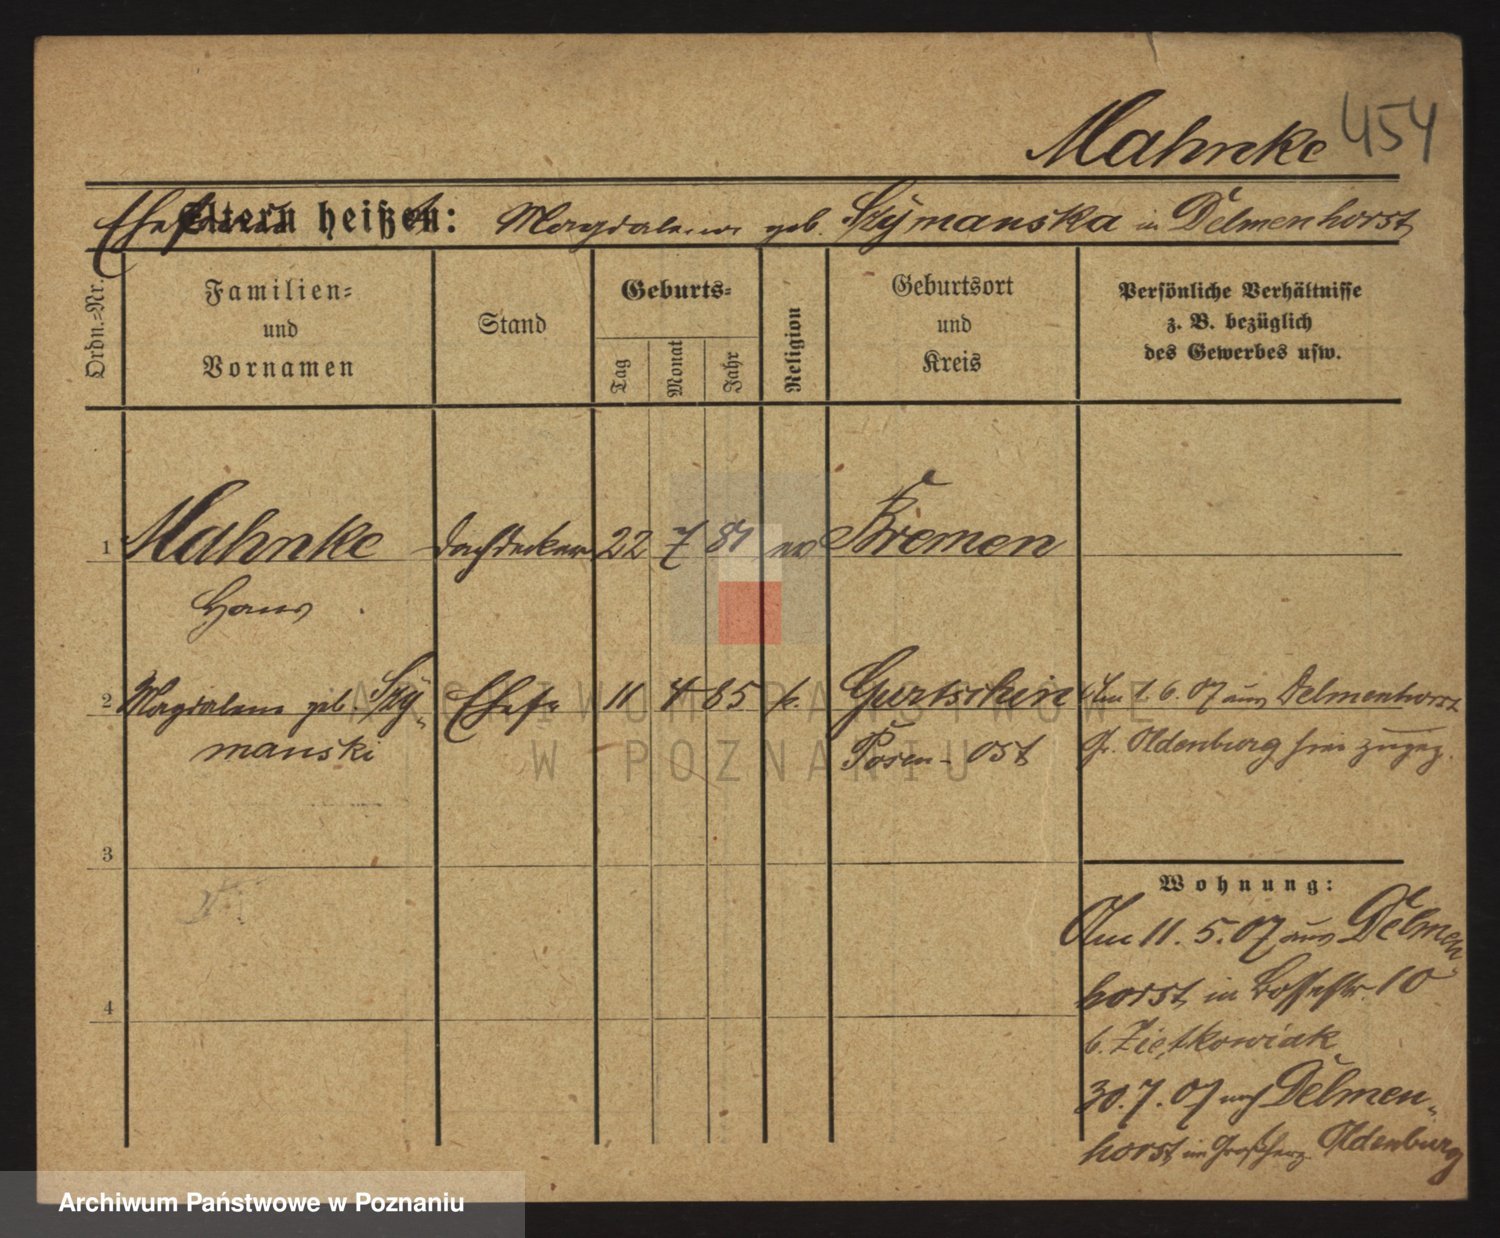 Mahnke 454
Ehefrau
Eltern heißen: Magdalena geb. Szymanska in Delmenhorst
Ordn.=Nr.
Familien=
und
Vornamen
Stand
Geburts=
Tag
Monat
Jahr
Religion
Geburtsort
und
Kreis
Persönliche Verhältnisse
z. B. bezüglich
des Gewerbes usw.
1 Mahnke Dachdecker 22 7 81 ev Bremen
Hans
2 Magdalena geb. Szy- Ehefr 11 4 85 k. Gurtschin Am 1. 6. 07 aus Delmenhorst
manski Posen-Ost Gr. Oldenburg hier zugez.
3
4
Wohnung:
Am 11. 5. 07 aus Delmen
horst in 10
b. Ziętkowiak
30. 7. 07 nach Delmen-
horst im Großherz. Oldenburg
ARCHIWUM PAŃSTWOWE
W POZNANIU
Archiwum Państwowe w Poznaniu